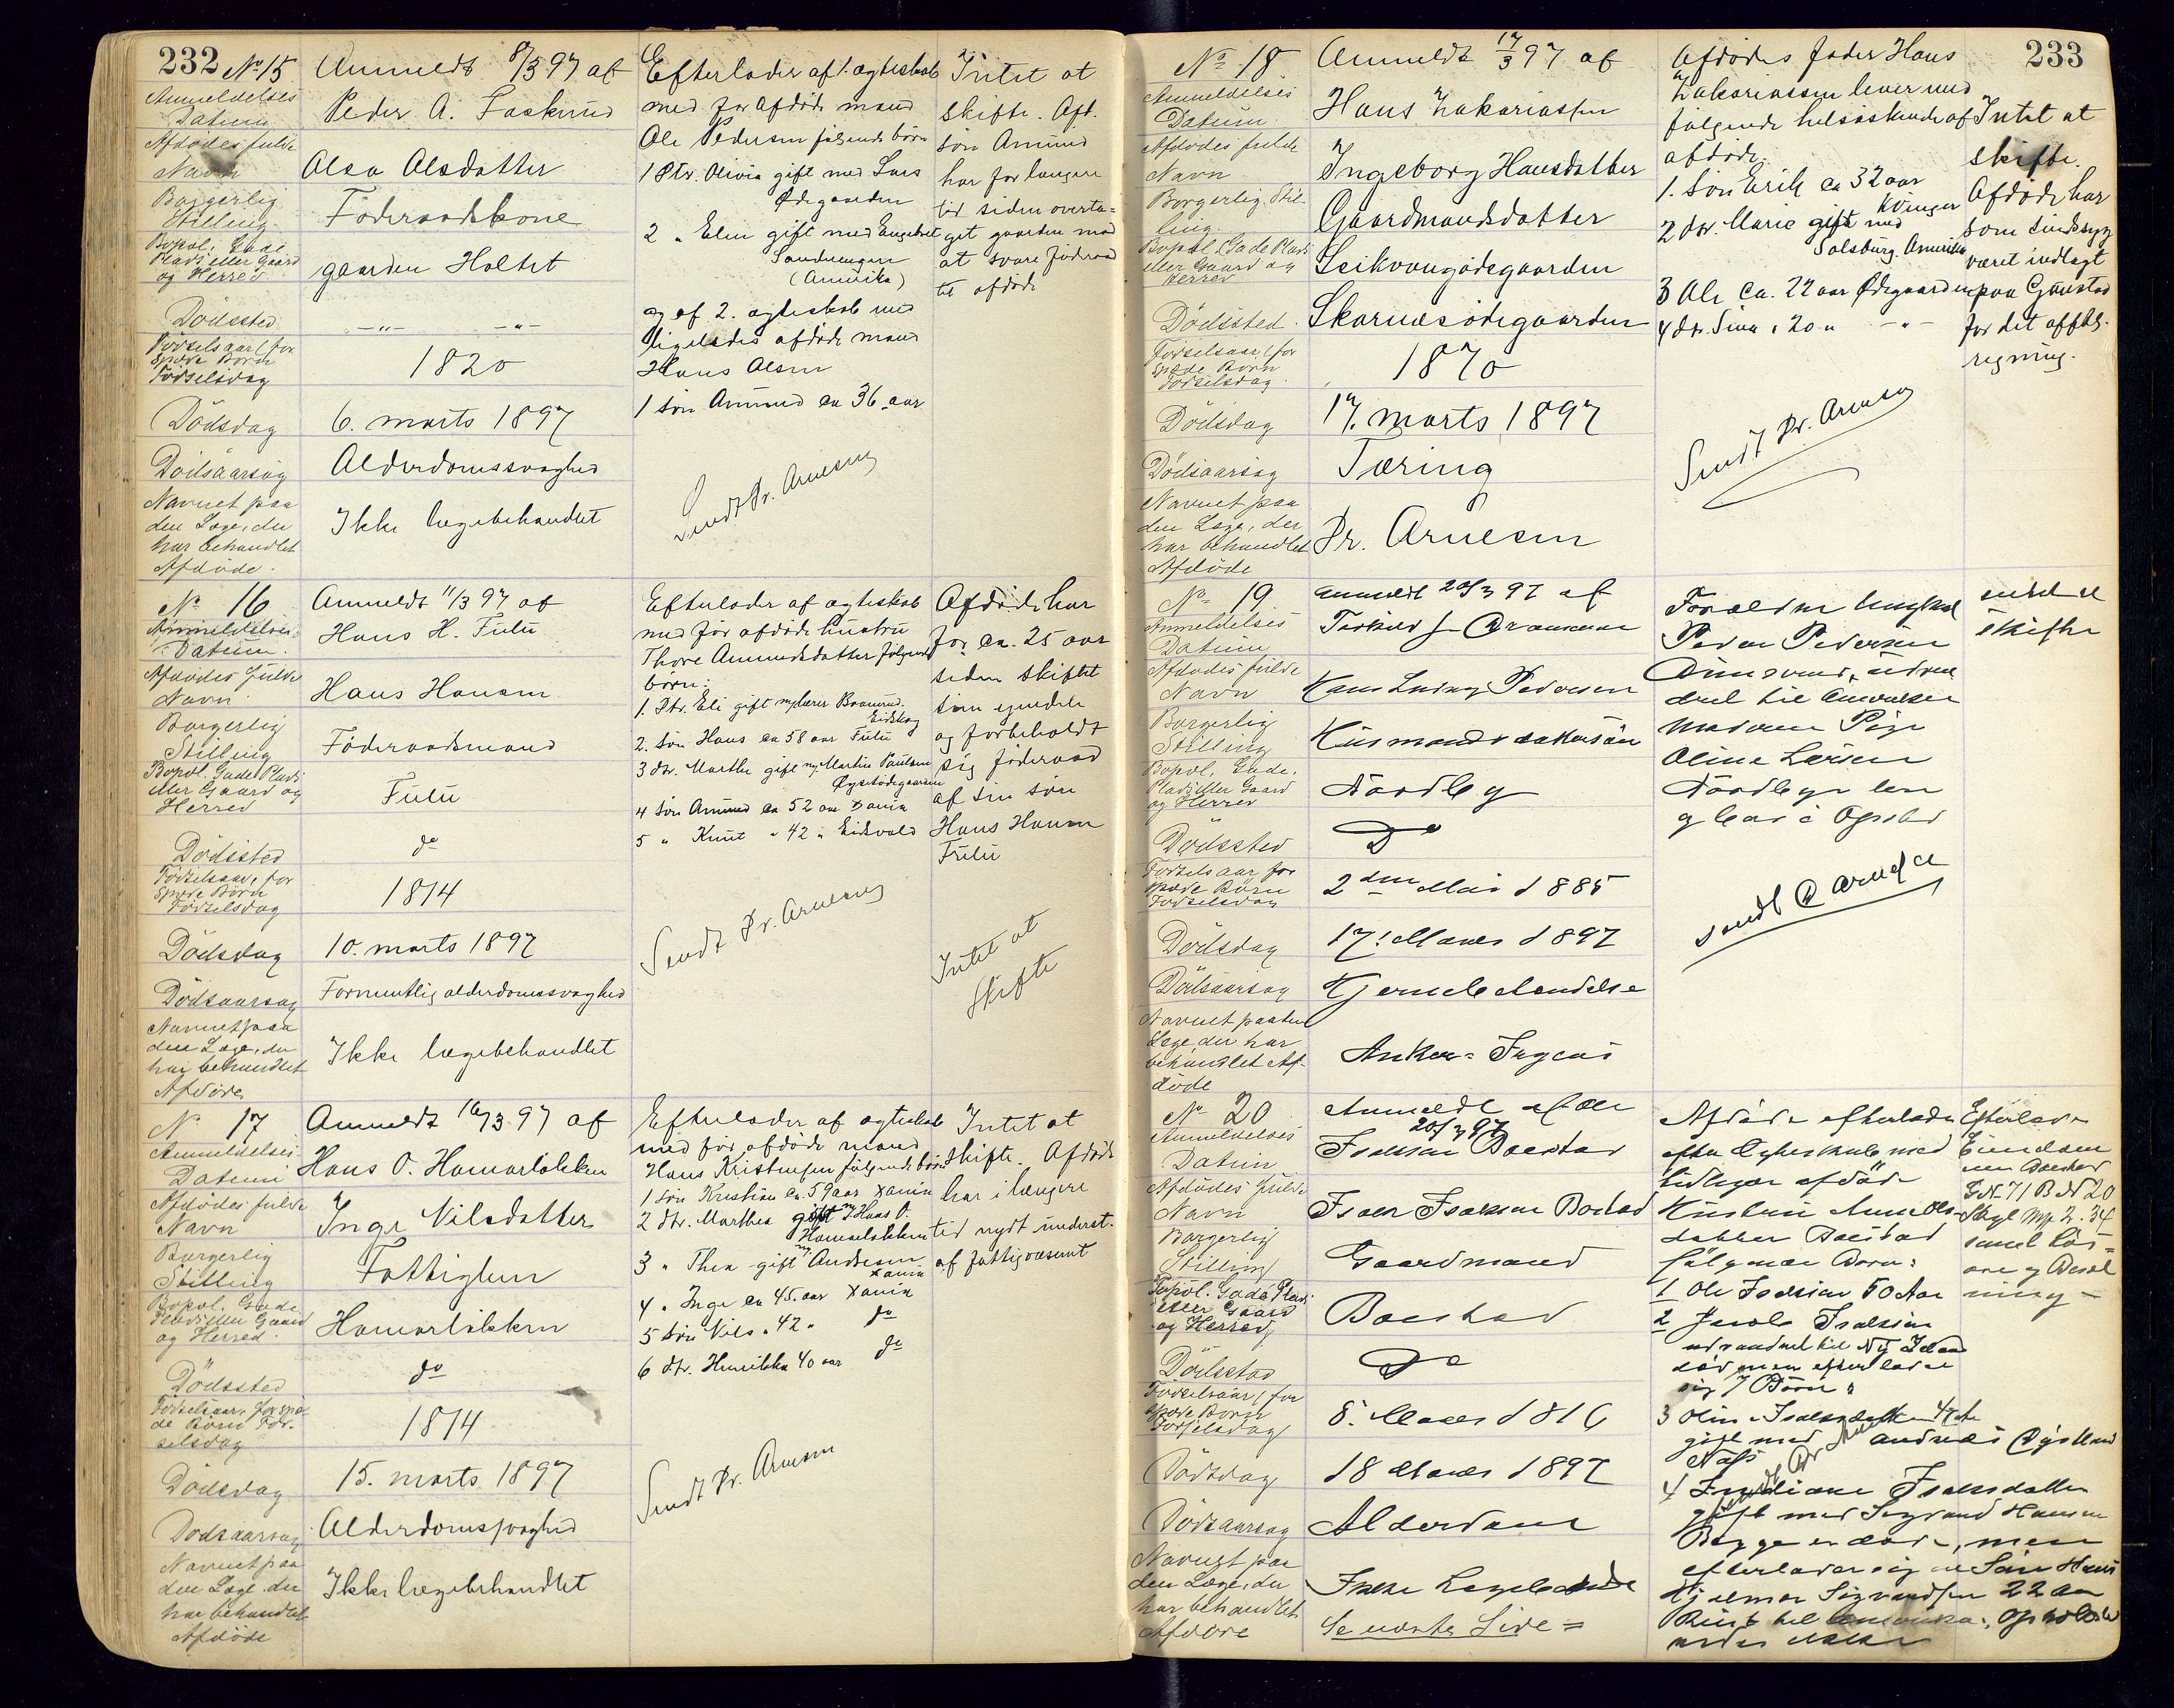 232
No. 15
Anmeldt 8/3 97 af
Anmeldelses
Datum
Peder A.
Afdødes fulde
Navn
Olea Olsdatter
Borgerlig
Stilling
Føderaadskone
Bopæl, Gade
Plads eller Gaard
og Herred
gaarden Holtet
Dødssted
—"— —"—
Fødselsaar (for
spæde Børn
Fødselsdag
1820
Dødsdag
6. marts 1897
Dødsaarsag
Alderdomssvaghed
Navnet paa
den Læge, der
har behandlet
Afdøde.
Ikke lægebehandlet
Efterlader af 1. ægteskab
med før afdøde mand
Ole Pedersen følgende børn
1 Dtr. Olivia gift med Lars
Ødegaarden
2 " Elen gift med Engebret
(Amerika)
og af 2. ægteskab med
ligeledes afdøde mand
Hans Olsen
1 søn Amund ca 36 aar
Sendt Dr. Arnesen
Intet at
skifte. Afd.
søn Amund
har for længere
tid siden overta-
get gaarden mod
at svare føderaad
til afdøde
No. 16
Anmeldt 11/3 97 af
Anmeldelses
Datum.
Hans H. Fulu
Afdødes fulde
Navn
Hans Hansen
Borgerlig
Stilling
Føderaadsmand
Bopæl. Gade Plads
eller Gaard og
Herred
Fulu
Dødssted
do
Fødselsaar, for
spæde Børn
Fødselsdag
1814
Dødsdag
10. marts 1897
Dødsaarsag
Formentlig alderdomssvaghed
Navnet paa
den Læge, der
har behandlet
Afdøde
Ikke lægebehandlet
Efterlader af ægteskab
med før afdøde hustru
Thore Amundsdatter følgende
børn:
1. Dtr. Eli gift m/
Eidskog
2. søn Hans ca 58 aar Fulu
3 dtr. Marthe gift m/ Martin Paulsen
4 søn Amund ca 52 aar Xania
5 " Knut " 42 " Eidsvold
Sendt Dr. Arnesen
Afdøde har
for ca. 25 aar
siden skiftet
sin eiendele
og forbeholdt
sig føderaad
af sin søn
Hans Hansen
Fulu
Intet at
skifte
No. 17
Anmeldt 16/3 97 af
Anmeldelses
Datum
Hans O. Hamarløkken
Afdødes fulde
Navn
Inge Nilsdatter
Borgerlig
Stilling
Fattiglem
Bopæl. Gade
Plads eller Gaard
og Herred.
Hamarløkken
Dødssted
do
Fødselsaar, for spæ-
de Børn Fød-
selsdag
1814
Dødsdag
15. marts 1897
Dødsaarsag
Alderdomssvaghed
Navnet paa
den Læge der
har behandlet
Afdøde
Ikke lægebehandlet
Efterlader af ægteskab
med før afdøde mand
Hans Kristensen følgende børn
1 søn Kristian ca. 59 aar Xania
2 dtr. Marthea gift m/ Hans O.
Hamarløkken
3 " Thea gift m/ Andresen
Xania
4 " Inge ca 45 aar Xania
5 søn Nils " 42 " do
6 dtr. Henrikka 40 aar do
Sendt Dr. Arnesen
Intet at
skifte. Afdøde
har i længere
tid nydt underst.
af fattigvæsenet
233
No. 18
Anmeldt 17/3 97 af
Anmeldelses
Datum.
Hans Zakariassen
Afdødes fulde
Navn
Ingeborg Hansdatter
Borgerlig Stil-
ling.
Gaardmandsdatter
Bopæl. Gade Plads
eller Gaard og
Herred
Leikvangødegaarden
Dødssted.
Skarnæsødegaarden
Fødselsaar, (for
spæde Børn
Fødselsdag.
1870
Dødsdag
17. marts 1897
Dødsaarsag
Tæring
Navnet paa
den Læge, der
har behandlet
Afdøde
Dr. Arnesen
Afdødes fader Hans
Zakariassen lever med
følgende helsøskende af
afdøde:
1. søn Erik ca 32 aar
2 dtr. Marie gift med
Salsburg. Amerika
3 Ole ca. 22 aar Ødegaarden
4 dtr. Sina " 20 " —"—
Sendt Dr. Arnesen
Intet at
skifte.
Afdøde har
som sindssyg
været indlagt
paa Gaustad
for det offtl.
regning.
No. 19
Anmeldt 20/3 97 af
Anmeldelses
Datum
Afdødes fulde
Navn
Hans Ludvig Pedersen
Borgerlig
Stilling
Husmands
Bopæl, Gade.
Plads eller Gaard
og Herred
Nordby
Dødssted
Do
Fødselsaar for
spæde Børn
Fødselsdag
2den Mai 1885
Dødsdag
17. Marts 1897
Dødsaarsag
Navnet paa den
Læge, der har
behandlet Af-
døde
Forældre
Peder Pedersen
til Amerika
Pige
Oline Larsen
sendt Dr Arnesen
intet at
skifte
No. 20
Anmeldt af Ole
20/3 97
Anmeldelses
Datum
Isaksen Baastad
Afdødes fulde
Navn
Isak Isaksen Bostad
Borgerlig
Stilling
Gaardmand
Bopæl. Gade Plads
eller Gaard
og Herred
Baastad
Dødssted
Do
Fødselsaar, (for
spæde Børn
Fødselsdag
8. Marts 1816
Dødsdag
18 Marts 1897
Dødsaarsag
Alderdom
Navnet paa
den Læge, der
har behandlet
Afdøde
Se næste Side =
Afdøde efterlader
efter Ægteskab med
tidligere afdøde
datter Baastad
følgende Børn:
1 Ole Isaksen 50 Aar
2 Jacob Isaksen
udvandret til
død men efterlader
sig 7 Børn
3 Oline Isaksdatter
gift med Andreas
Næs
4 Isaksdatter
gift med Sigvand Hansen
Begge er døde, men
efterlader sig en Søn Hans
Hjelmer Sigvandsen 22 Aar
Reist til Amerika.
Efterlader
Eiendommen Baastad
G.N. 71 B.N. 20
Skyl Mk 2.34
samt Løs-
øre og Besæt-
ning —